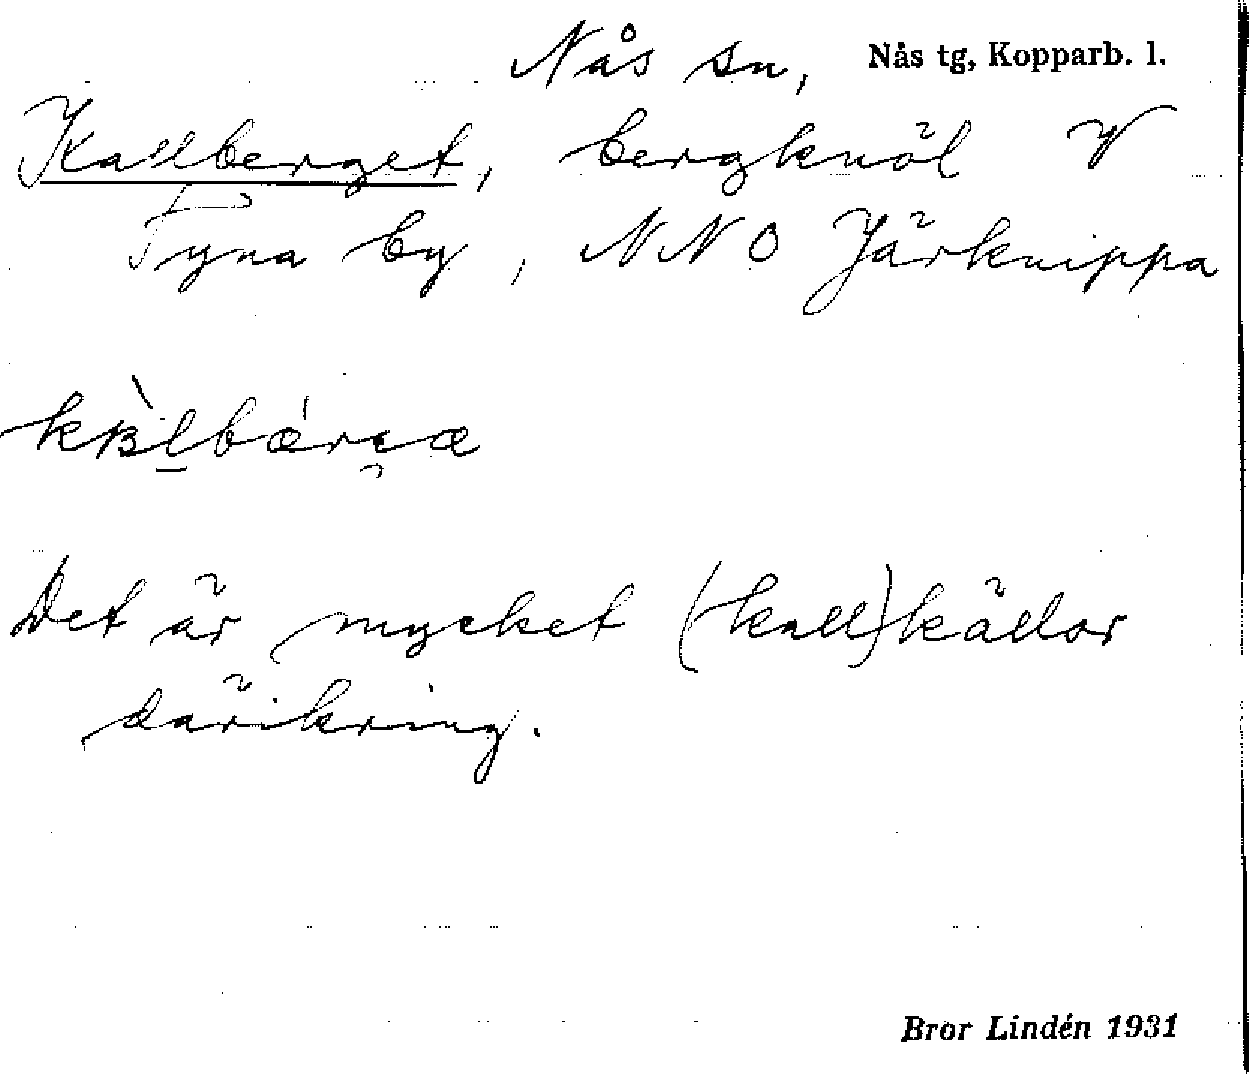 Nås sn, Nås tg, Kopparb. l.
Kallberget, bergknöl V
Tyna by, NNO Järknippa
Det är mycket (kall)källor
därikring.
Bror Lindén 1931